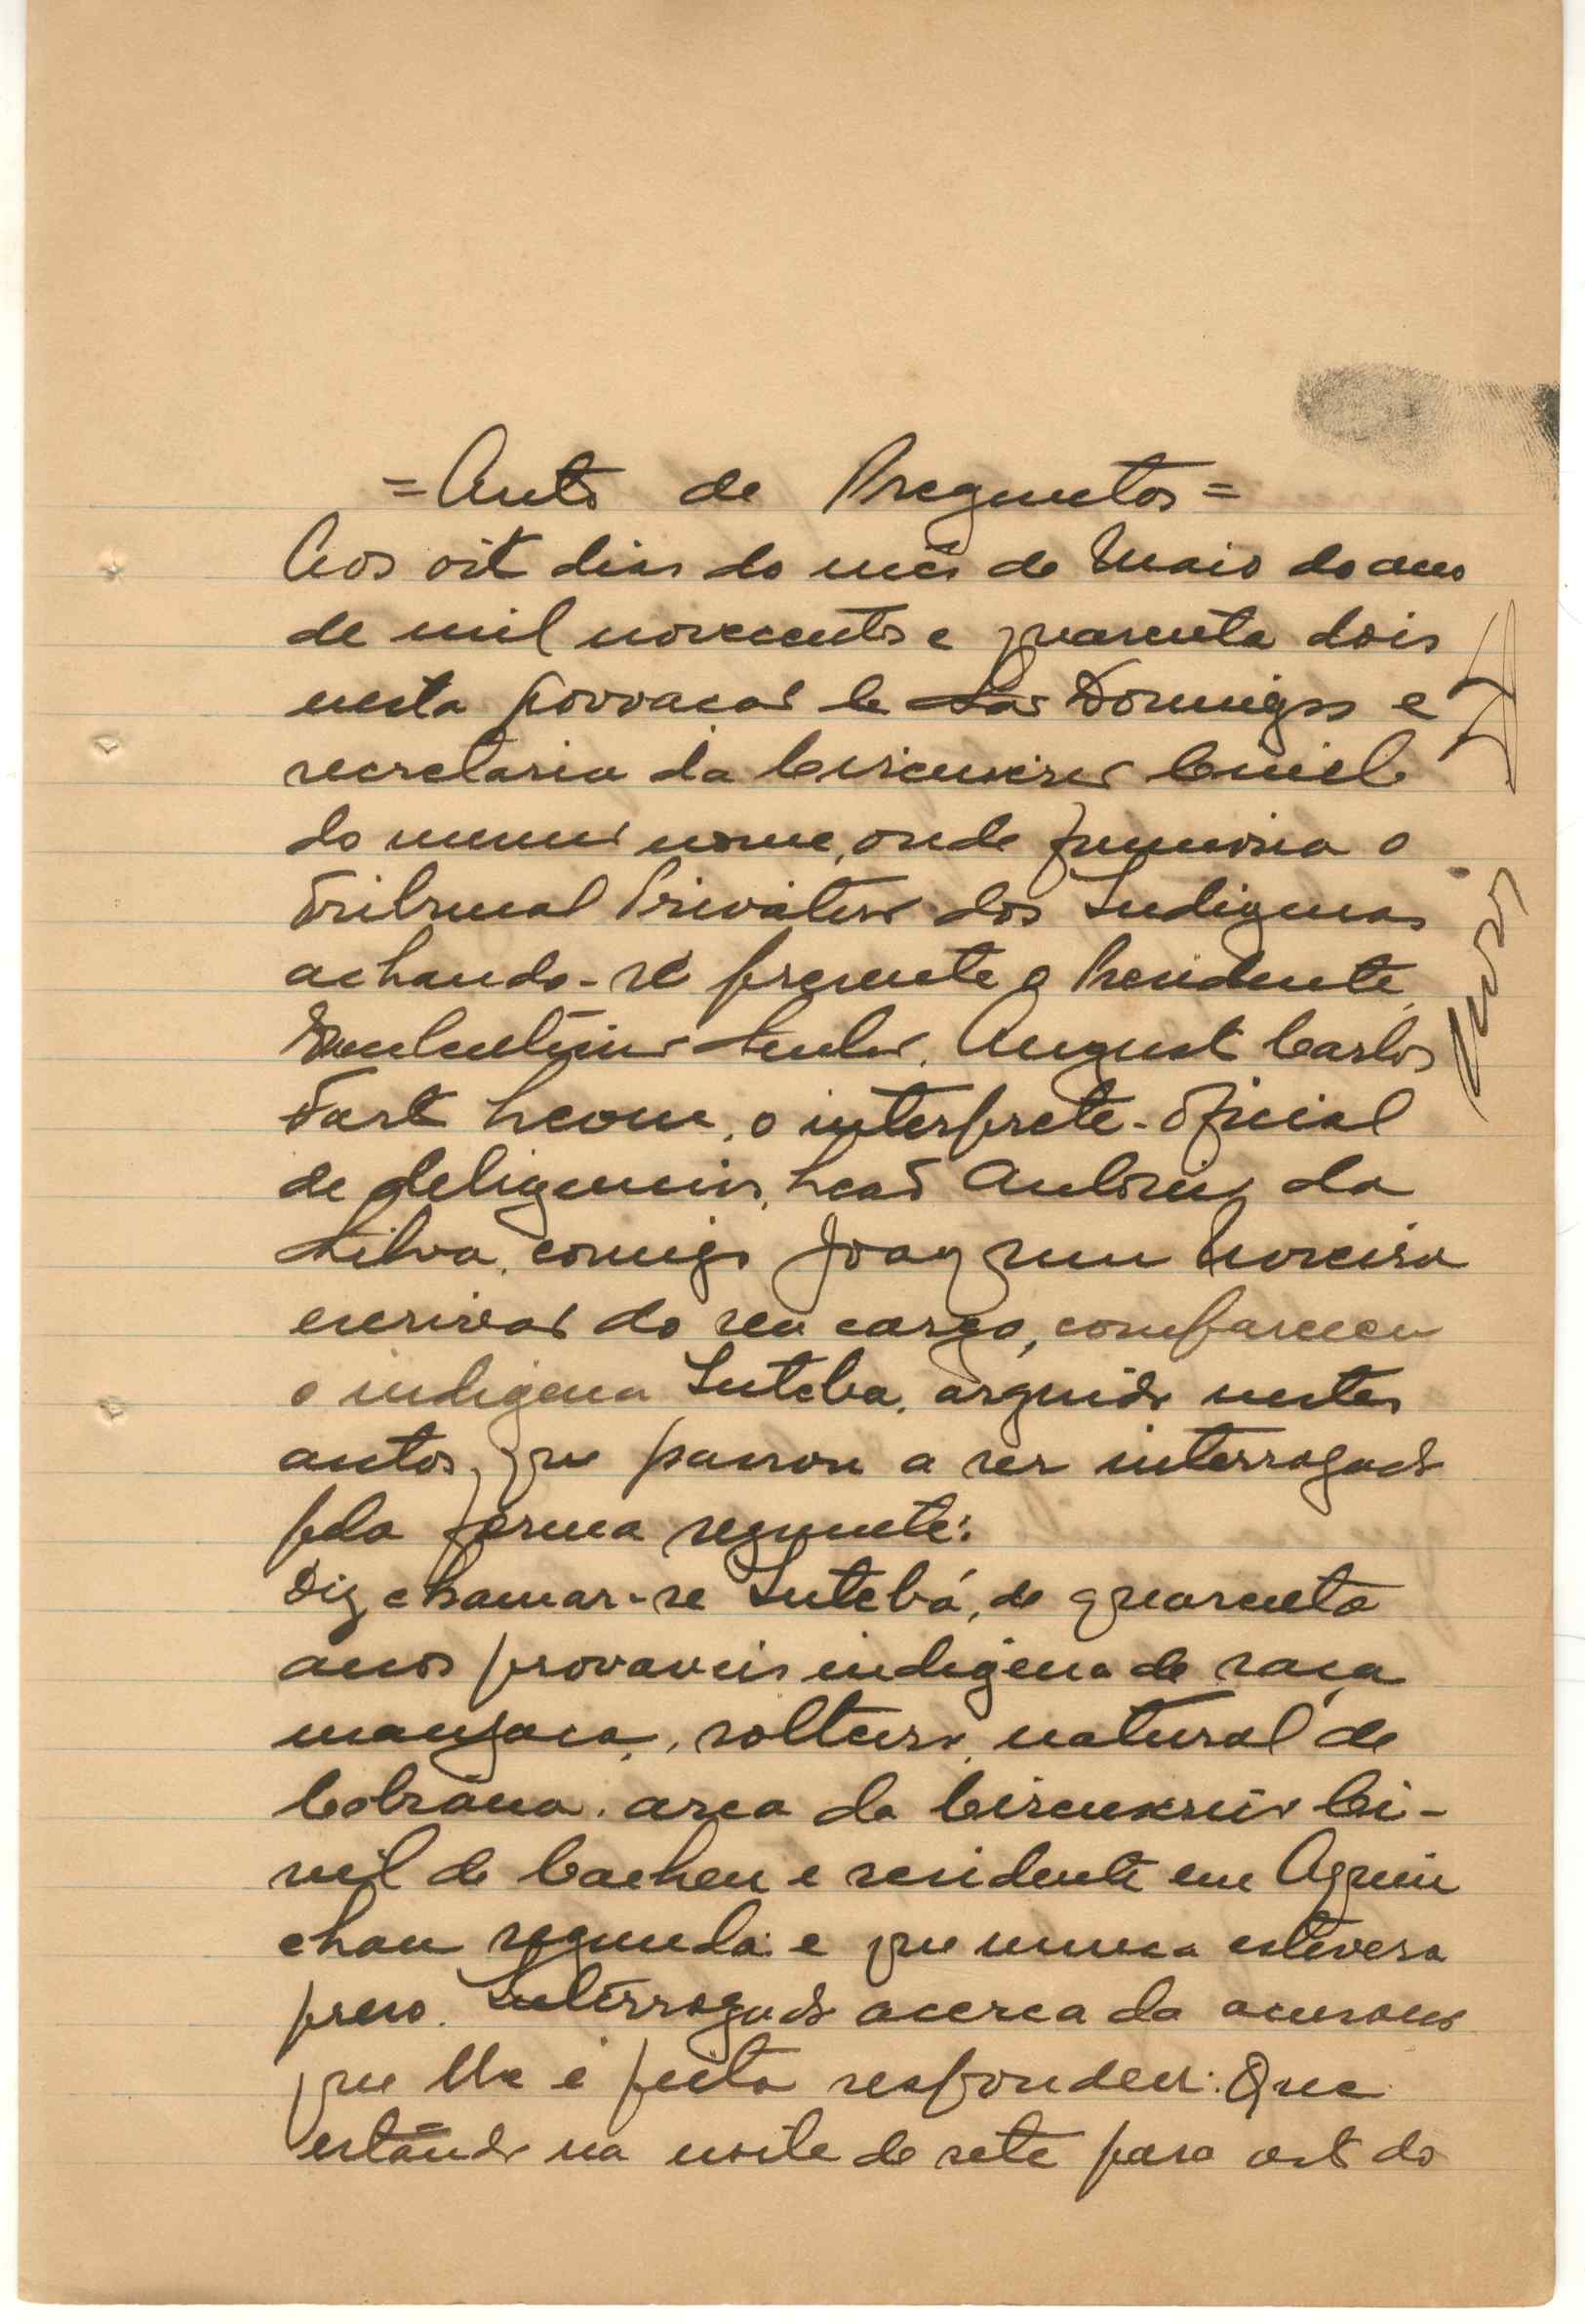 = Auto de Preguntas =
Aos oito dias do mês de Maio do ano
de mil novecentos e quarenta dois
nesta povoação de São Domingos e
secretaria da Circunscrição Civil
do mesmo nome, onde funciona o
Tribunal Privativo dos Indigenas
achando-se presente o Presidente,
Senhor, Augusto Carlos
o interprete-oficial
de deligencias, Antonio da
Silva, comigo Joaquim Moreira
escrivão do seu cargo, compareceu
o indigena Inteba, arguido nestes
autos, que passou a ser interrogado
pela fórma seguinte:
Diz chamar-se Intebá, de quarenta
anos provaveis indigena de raça
manjaca, solteiro, natural de
Cobiana, area da Circunscrição Ci-
vil de Cacheu e residente em
segunda e que nunca estivera
preso. Interrogado acerca da acusação
que lhe é feita respondeu: Que
estando na noite de sete para oito do